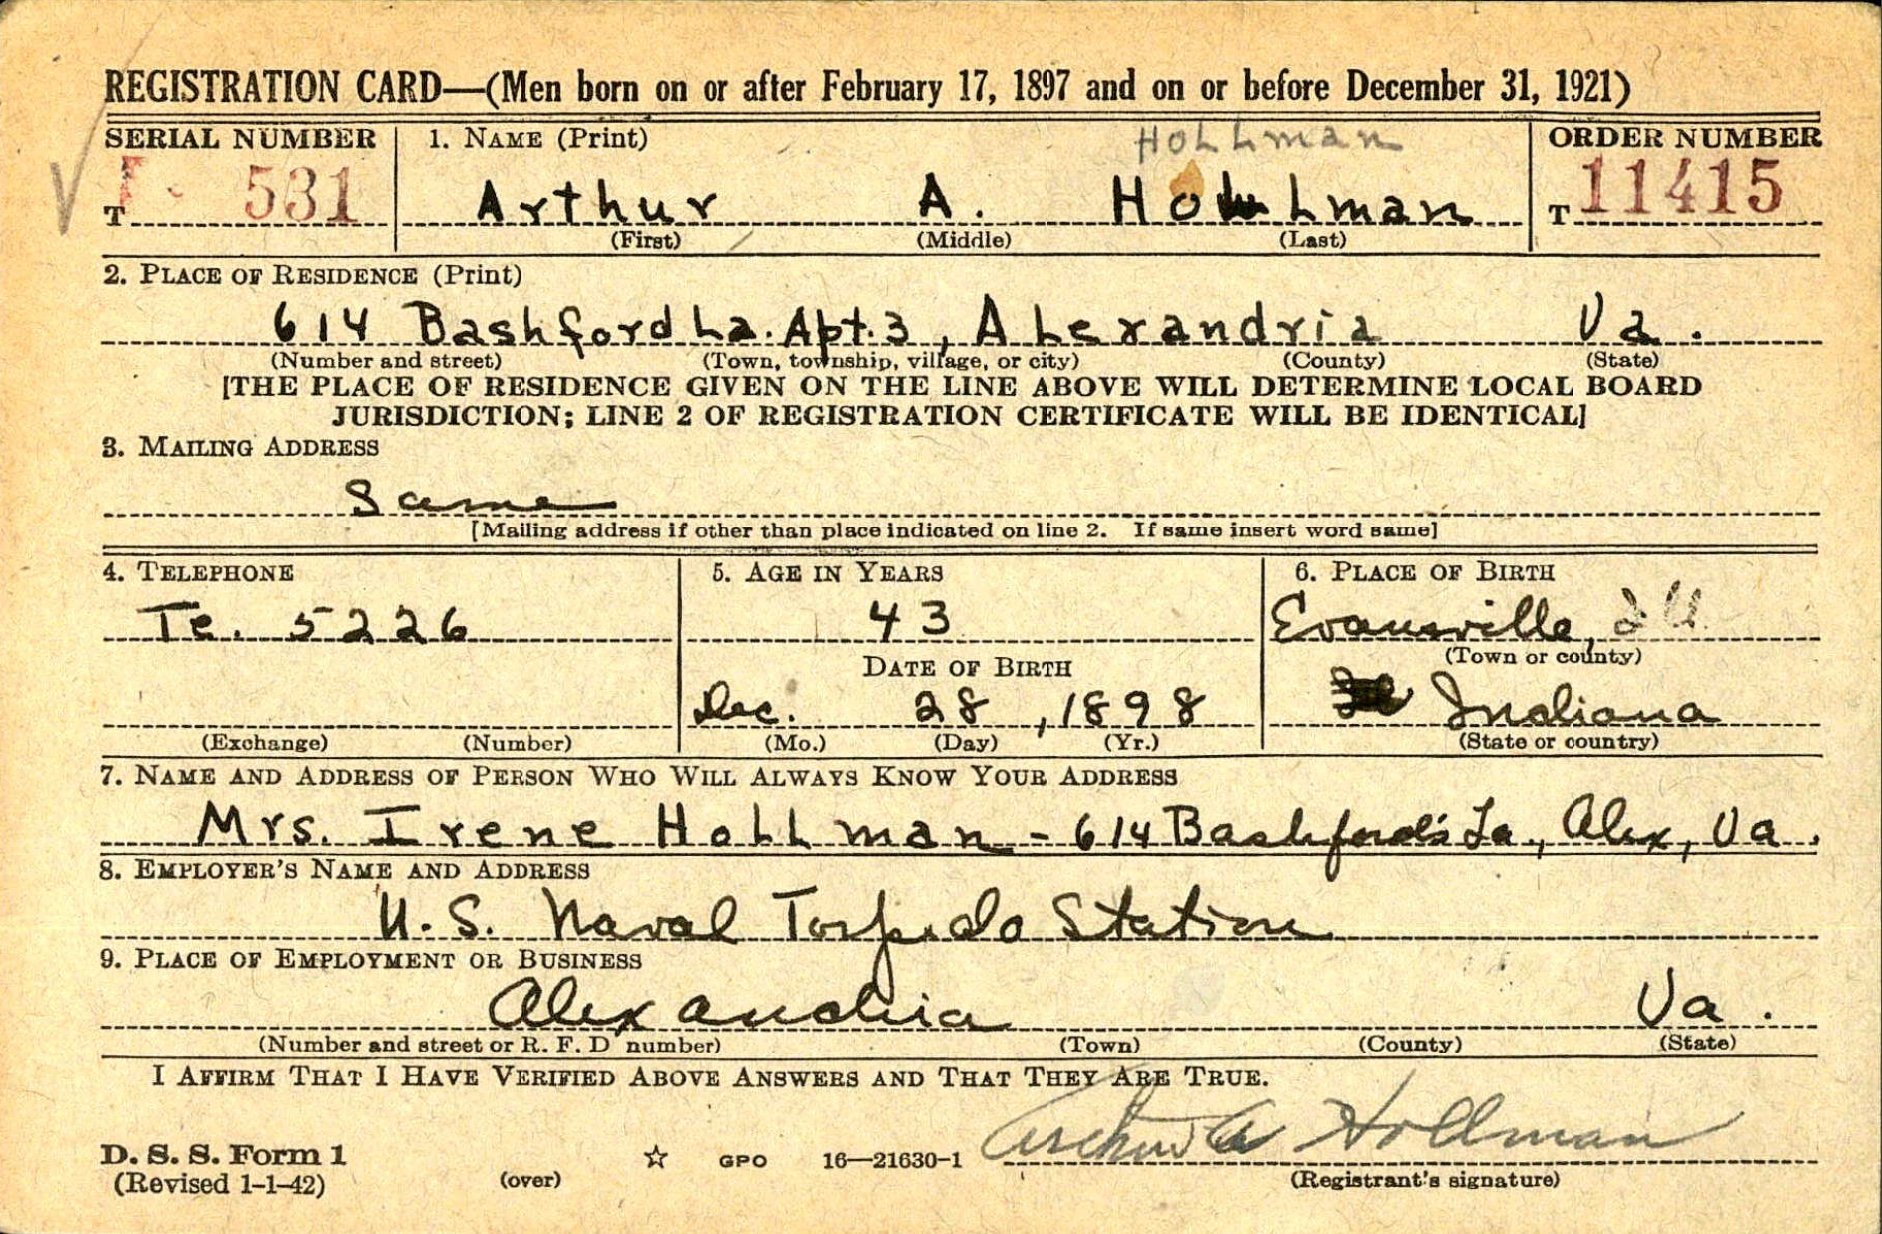 REGISTRATION CARD—(Men born on or after February 17, 1897 and on or before December 31, 1921)
SERIAL NUMBER 1. NAME (Print) HOLLman ORDER NUMBER
T 531 Arthur A. HOLLman T 11415
(First) (Middle) (Last)
2. PLACE OF RESIDENCE (Print)
614 Bashford La. Apt. 3, ALexandria Va.
(Number and street) (Town, township, village, or city) (County) (State)
[THE PLACE OF RESIDENCE GIVEN ON THE LINE ABOVE WILL DETERMINE LOCAL BOARD
JURISDICTION; LINE 2 OF REGISTRATION CERTIFICATE WILL BE IDENTICAL]
3. MAILING ADDRESS
Same
[Mailing address if other than place indicated on line 2. If same insert word same]
4. TELEPHONE 5. AGE IN YEARS 6. PLACE OF BIRTH
Te. 5226 43 Evansville,
DATE OF BIRTH (Town or county)
Dec. 28, 1898 Indiana
(Exchange) (Number) (Mo.) (Day) (Yr.) (State or country)
7. NAME AND ADDRESS OF PERSON WHO WILL ALWAYS KNOW YOUR ADDRESS
Mrs. Irene HoLLman - 614 Bashford's La., Alex, Va.
8. EMPLOYER'S NAME AND ADDRESS
U.S. Naval Torpedo Station
9. PLACE OF EMPLOYMENT OR BUSINESS
Alexandria Va.
(Number and street or R. F. D number) (Town) (County) (State)
I AFFIRM THAT I HAVE VERIFIED ABOVE ANSWERS AND THAT THEY ARE TRUE.
Arthur A Hollman
D. S. S. Form 1 (over) ☆ GPO 16—21630-1 (Registrant's signature)
(Revised 1-1-42)